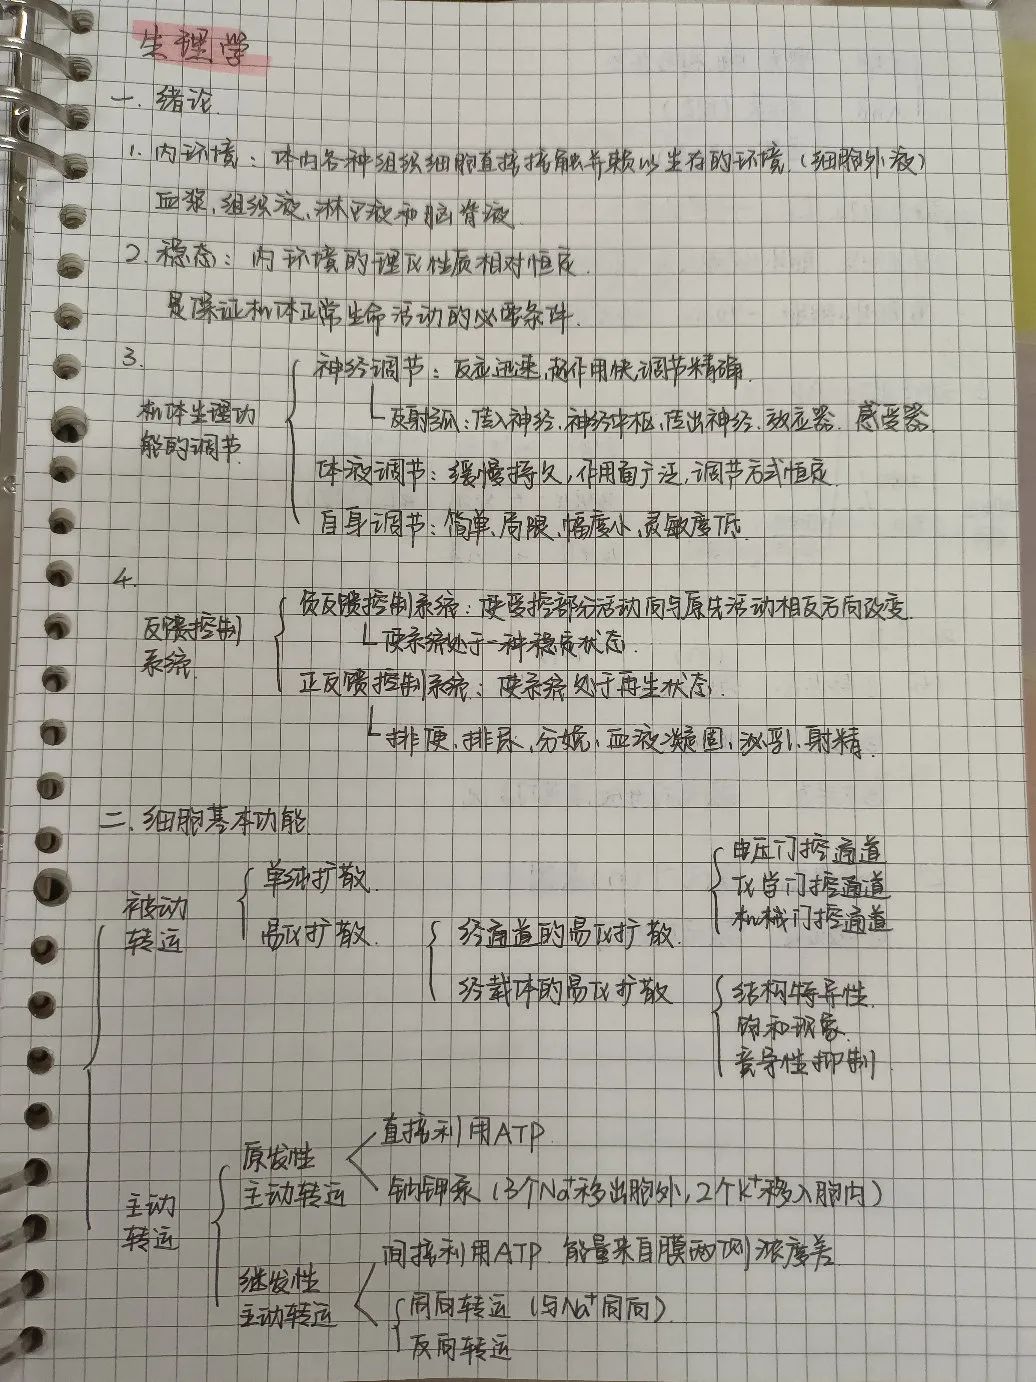 生理学
一. 绪论.
1. 内环境: 体内各种组织细胞直接接触并赖以生存的环境. (细胞外液)
血浆、组织液、淋巴液和脑脊液.
2. 稳态: 内环境的理化性质相对恒定.
是保证机体正常生命活动的必要条件.
3.
机体生理功能的调节.
神经调节: 反应迅速,起作用快,调节精确.
反射弧: 传入神经、神经中枢、传出神经、效应器、感受器.
体液调节: 缓慢持久,作用面广泛,调节方式恒定.
自身调节: 简单、局限、幅度小、灵敏度低.
4.
反馈控制系统.
负反馈控制系统: 使受控部分活动向与原先活动相反方向改变.
使系统处于一种稳定状态.
正反馈控制系统: 使系统处于再生状态.
排便、排尿、分娩、血液凝固、泌乳、射精.
二. 细胞基本功能.
被动转运
单纯扩散.
易化扩散.
经通道的易化扩散.
电压门控通道
化学门控通道
机械门控通道
经载体的易化扩散
结构特异性.
饱和现象.
竞争性抑制.
主动转运
原发性主动转运
直接利用ATP.
钠钾泵 (3个Na⁺移出胞外,2个K⁺移入胞内)
继发性主动转运
间接利用ATP. 能量来自膜两侧浓度差.
同向转运 (与Na⁺同向).
反向转运